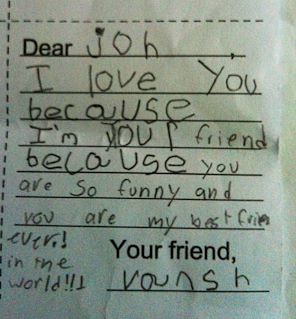 Dear joh,
I love You
because
I'm your friend
because you
are so funny and
you are my best frien
ever!
in the
world!!!
Your friend,
vounsh